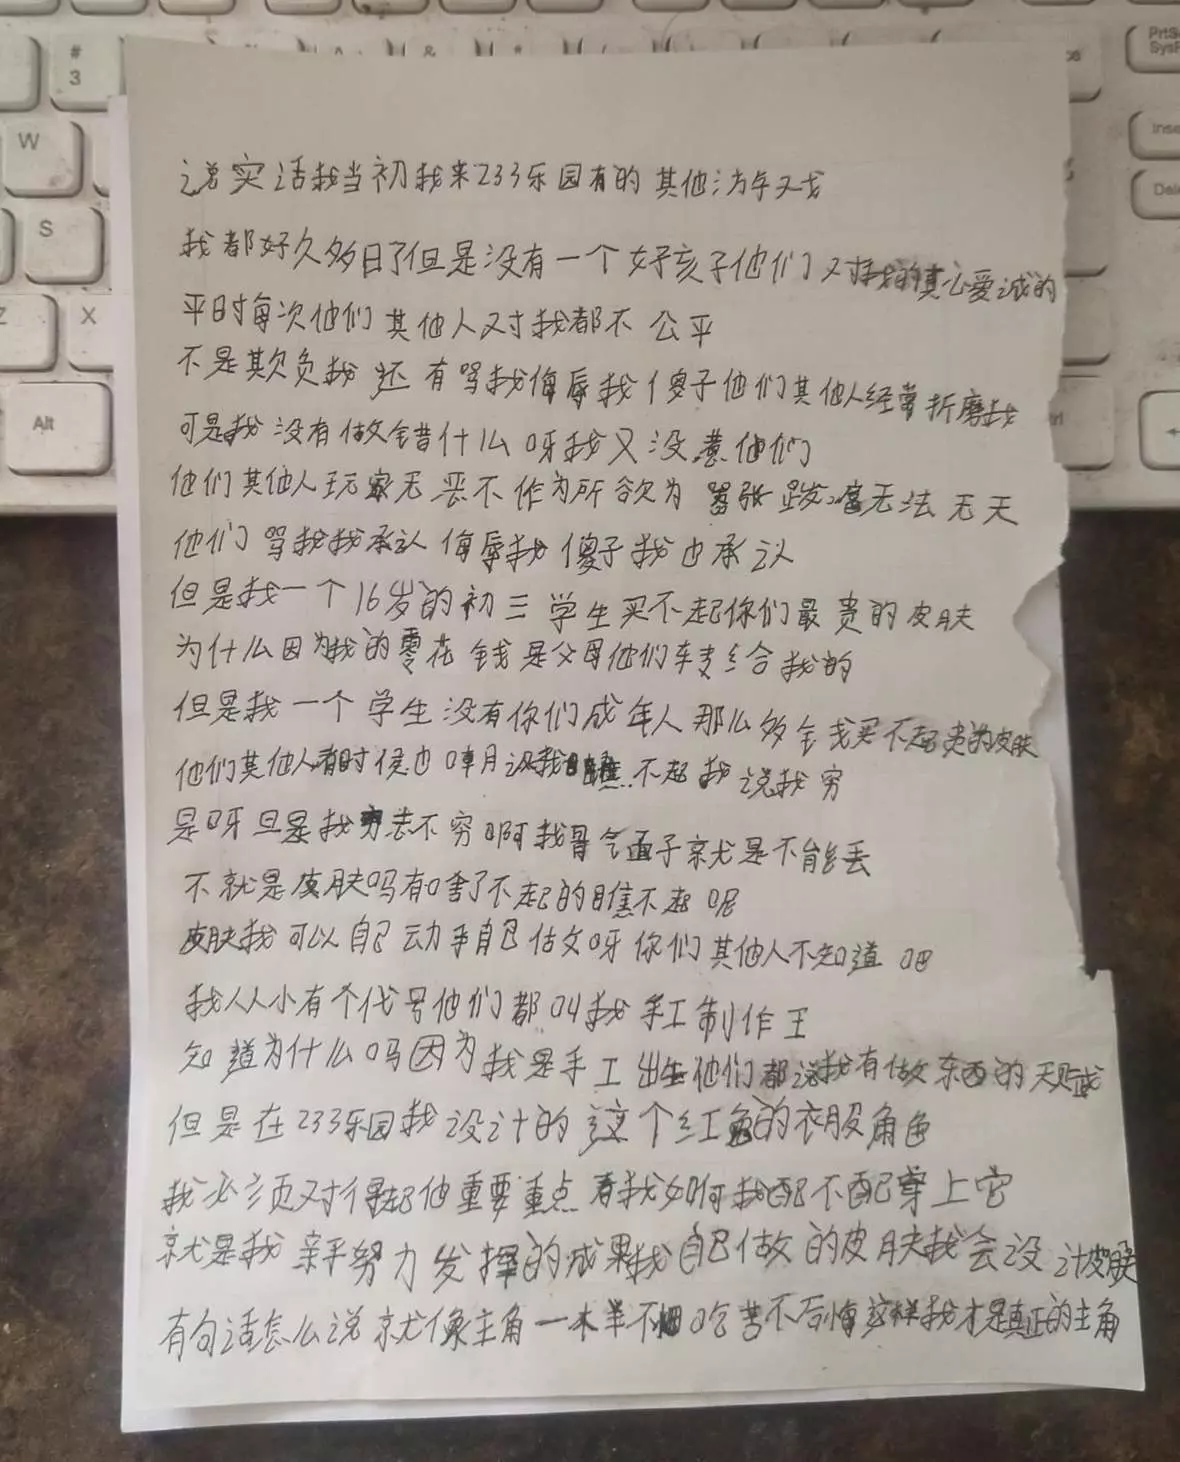 #
3
W
S
Z
X
Alt
&
PrtSc
SysR
Inse
Dele
说实话我当初我来233乐园有的其他游戏
我都好久多日了但是没有一个好孩子他们对我的真心爱诚的
平时每次他们其他人对我都不公平
不是欺负我还有骂我侮辱我傻子他们其他人经常折磨我
可是我没有做错什么呀我又没惹他们
他们其他人玩家无恶不作为所欲为嚣张跋扈无法无天
他们骂我我承认侮辱我傻子我也承认
但是我一个16岁的初三学生买不起你们最贵的皮肤
为什么因为我的零花钱是父母他们转支给我的
但是我一个学生没有你们成年人那么多钱买不起贵的皮肤
他们其他人有时候也嘲没我瞧不起我说我穷
是呀但是我穷志不穷啊我骨气面子就是不能丢
不就是皮肤吗有啥了不起的瞧不起呢
皮肤我可以自己动手自己做呀你们其他人不知道吧
我从小有个代号他们都叫我手工制作王
知道为什么吗因为我是手工出生他们都说我有做东西的天赋
但是在233乐园我设计的这个红色的衣服角色
我必须对得起他重要重点看我如何我配不配穿上它
就是我亲手努力发挥的成果我自己做的皮肤我会设计皮肤
有句话怎么说就像主角一样不怕吃苦不后悔这样我才是真正的主角